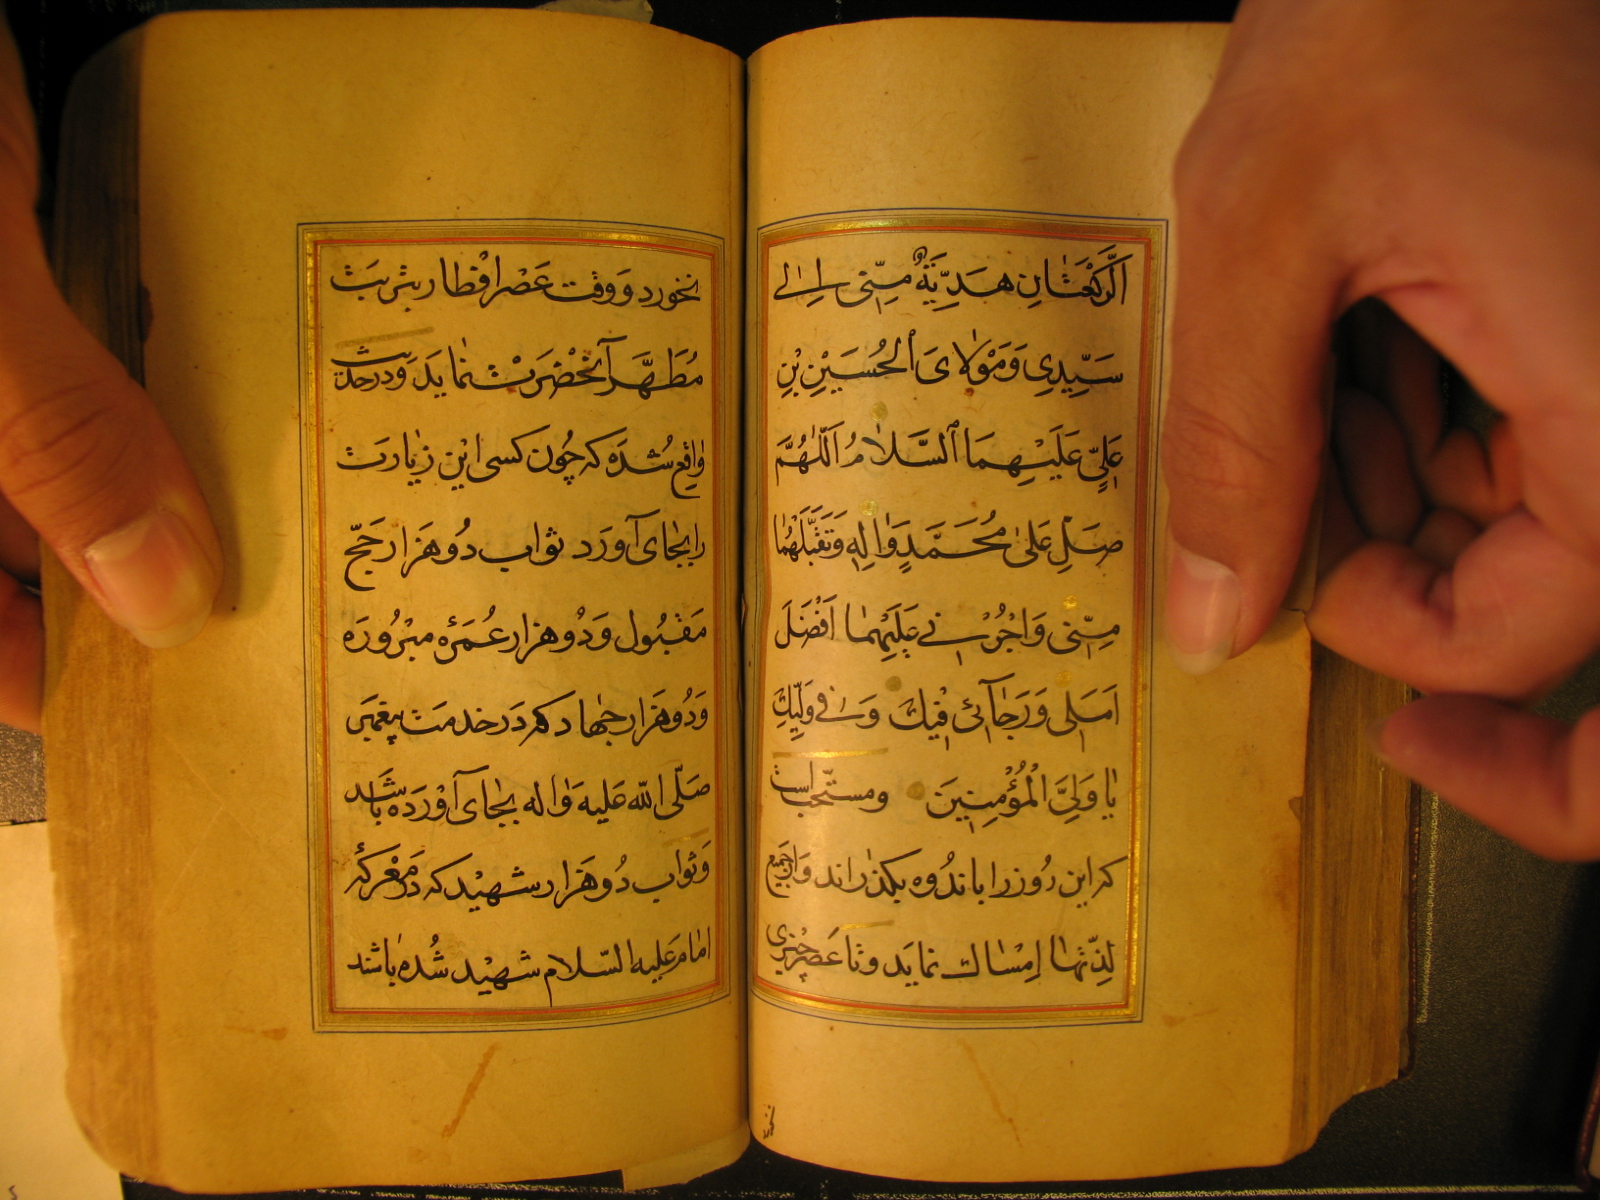 اَلرَّكْعَتٰانِ هَدِيَّةٌ مِنّي اِلٰي
سَيِّدِي وَمَوْلٰايَ ٱلْحُسَيْنِ بْنِ
عَلِيٍّ عَلَيْهِمَا ٱلسَّلٰامُ اَللّٰهُمَّ
صَلِّ عَلىٰ مُحَمَّدٍ وَاٰلِهِ وَتَقَبَّلْهُمٰا
مِنّي وَاْجُرْني عَلَيْهِمٰا اَفْضَلَ
اَمَلي وَرَجٰآئي فيكَ وَفي وَلِيِّكَ
يٰا وَلِيَّ الْمُؤْمِنينَ ومستحبّ است
كه اين رُوز را باندُوه بكذراند وَاز جَميع
لذّتها اِمْسٰاك نمايَد وتا عَصْر چيزى
نخورد وَ وقت عَصْر افْطار بشربَت
مُطَهَّر آنحْضْرَتْ نمٰايَد وَدر حديث
وٰاقع شُدَه كه چُون كسى اين زيٰارت
را بجٰاى آوَرَد ثواب دُو هَزار حَجّ
مَقْبُول وَدُو هزار عُمَرهٔ مبْرُورَه
وَدُو هَزار جهٰاد كه دَر خدمت پيغمبَر
صَلّى اللّه عَليه وَاٰله بجٰاى آوْرَدَه بٰاشَد
وَثواب دُو هَزار شهيْد كه دَر مَعْركهٔ
امٰام عَليه السّلام شهيْد شُدَه بٰاشند
نخورد